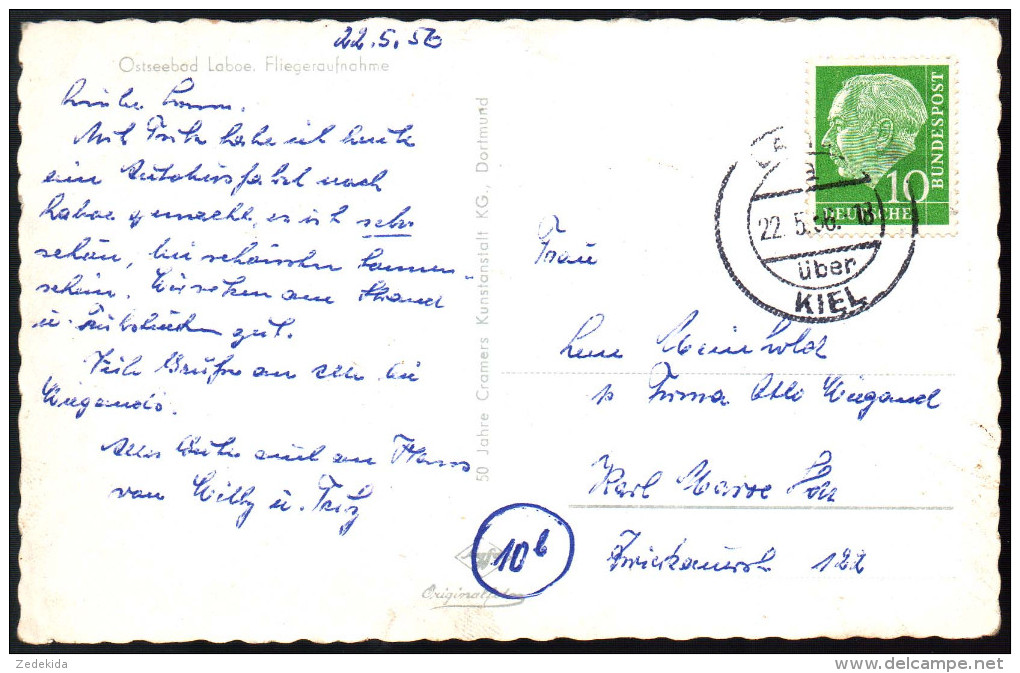 22.5.56
Ostseebad Laboe. Fliegeraufnahme
Mit Fritz habe ich heute
eine Autobusfahrt nach
Laboe gemacht, es ist sehr
schön, bei schönstem Sonnen-
schein. Wir sitzen am Strand
u. frühstücken gut.
Viele Grüße an alle bei
Wiegands.
Alles Gute auch an Hans
von Willy u. Fritz
50 Jahre Cramers Kunstanstalt KG., Dortmund
Originalfoto
10b
DEUTSCHE
BUNDESPOST
10
22.5.56.-18
über
KIEL
Frau
Lene Meinhold
Firma Otto Wiegand
Karl Marx
Zwickauerstr 122
Zedekida
www.delcampe.net